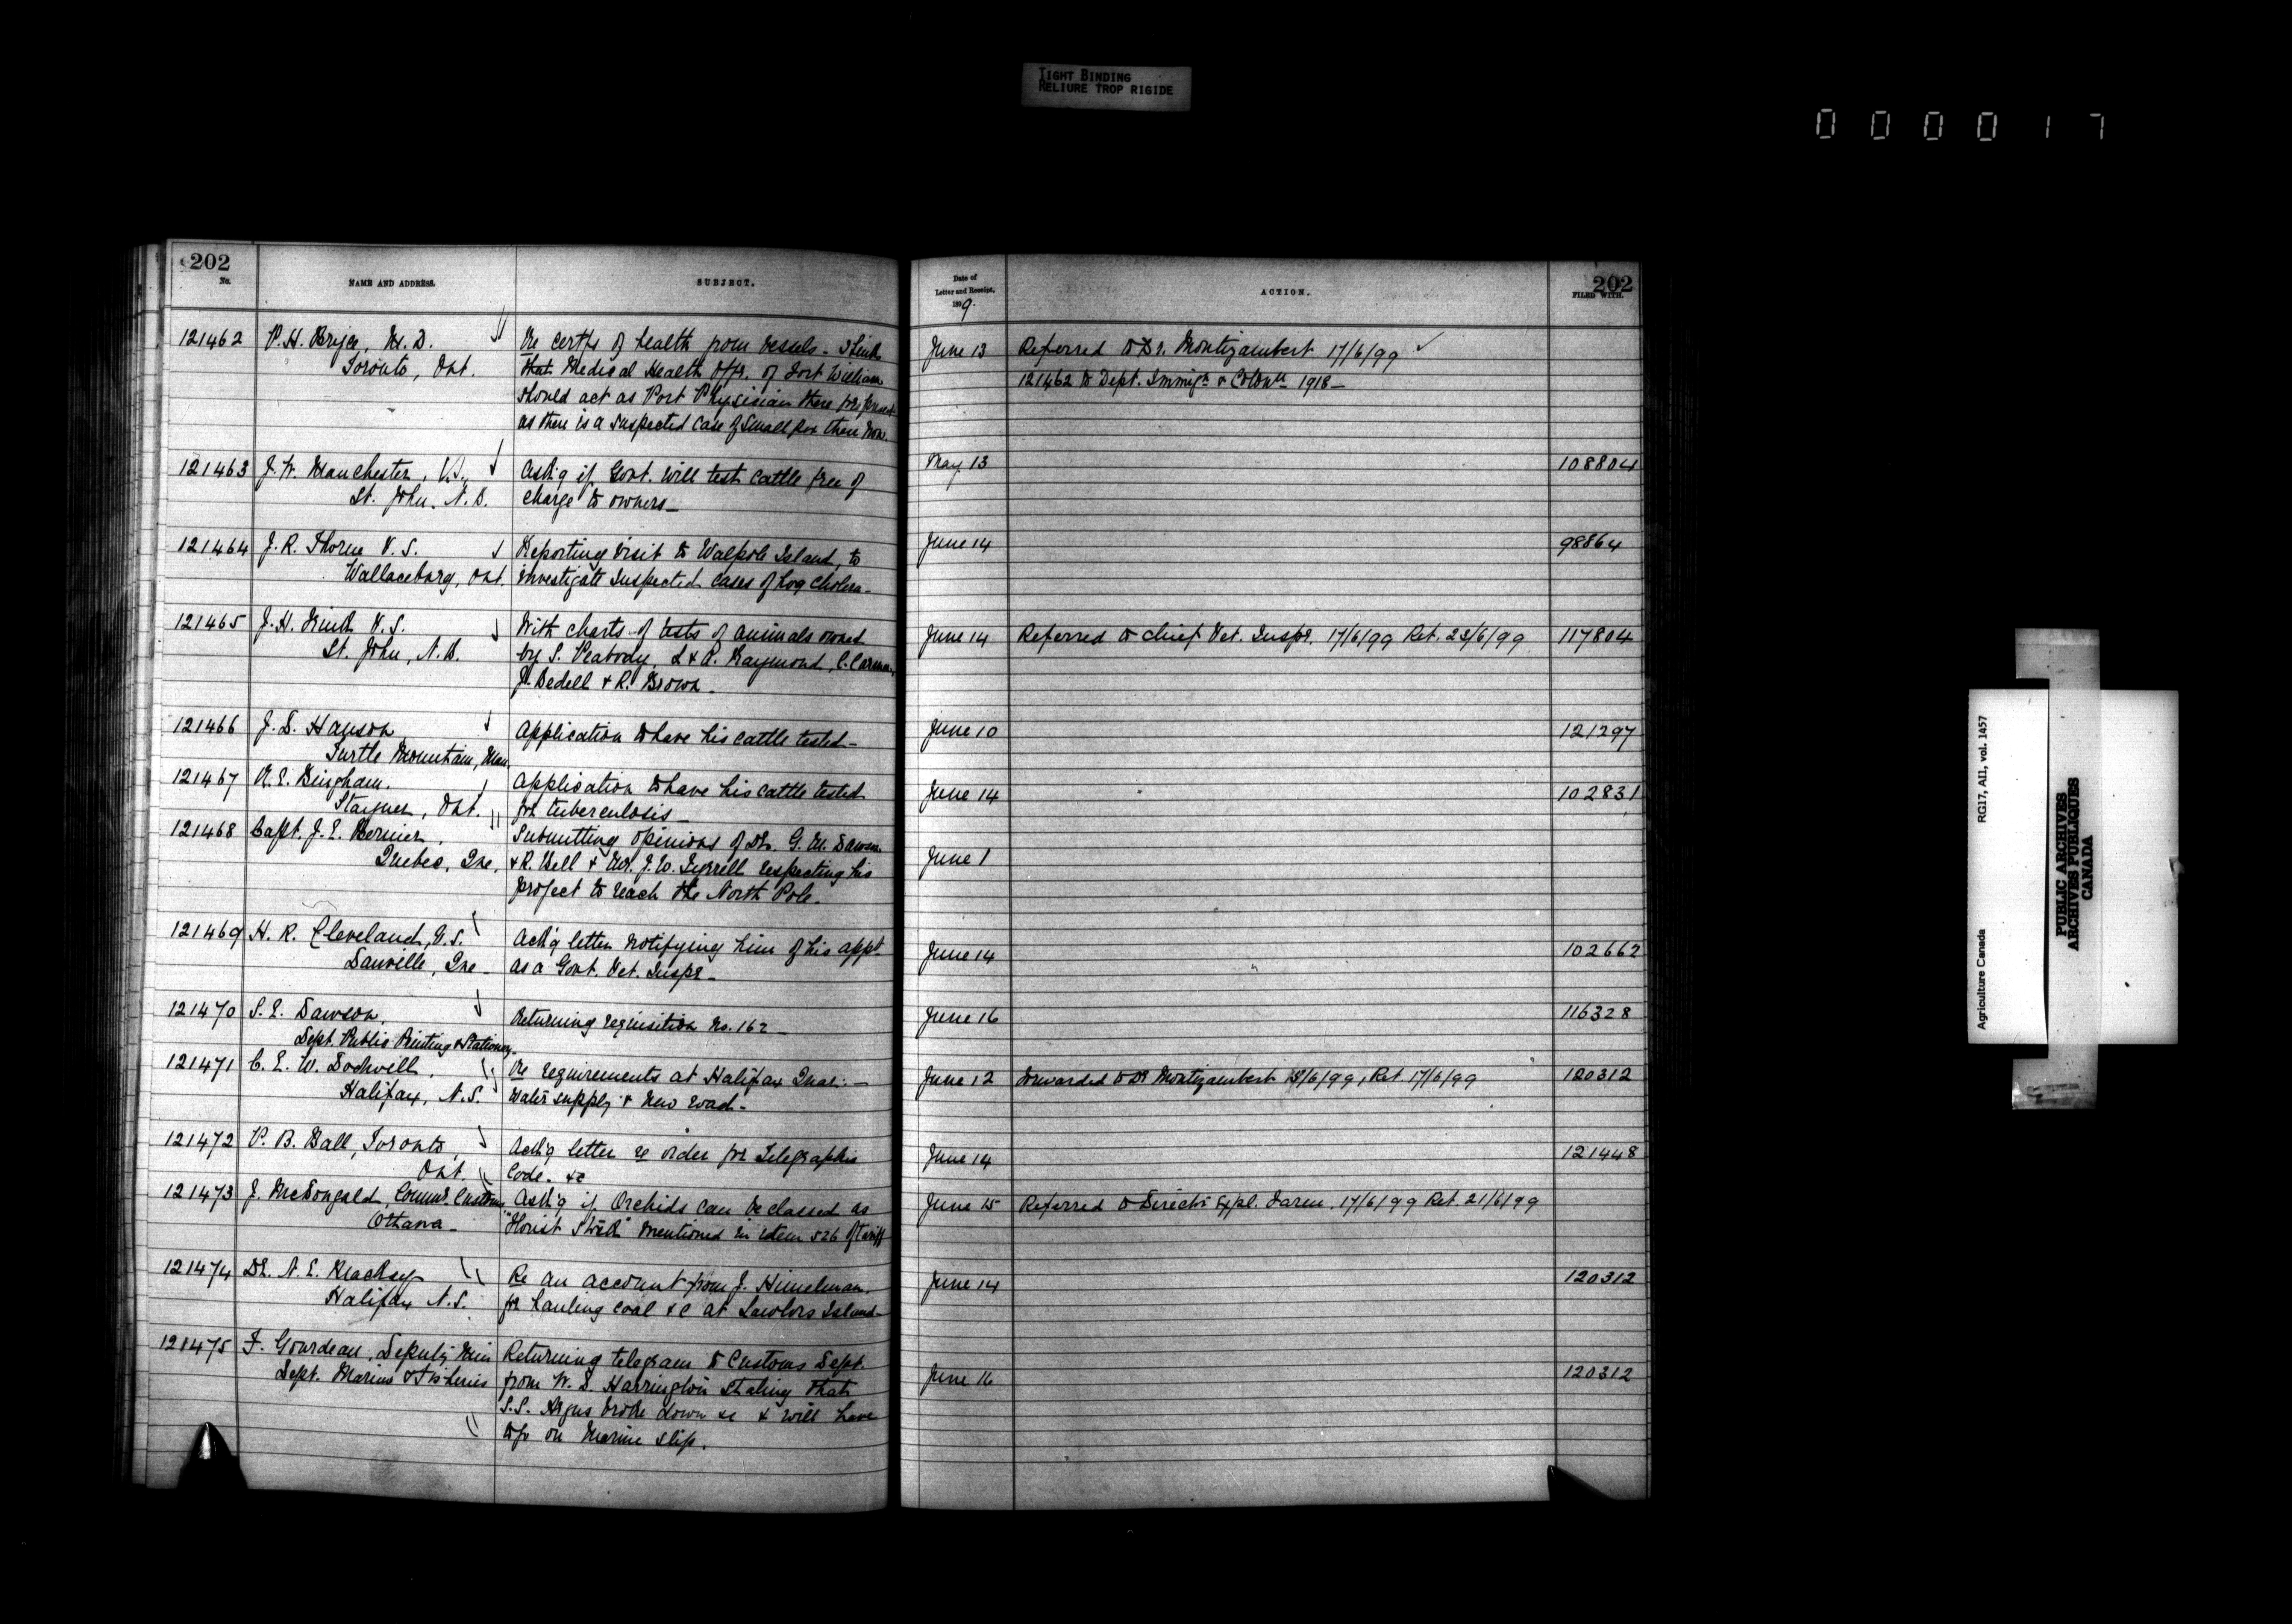 TIGHT BINDING
RELIURE TROP RIGIDE
000017
202
No.
NAME AND ADDRESS.
SUBJECT.
121462
P. H. Bryce, M. D.
Toronto, Ont.
Re certfs of health from vessels - Thinks
that Medical Health Offr. of Fort William
should act as Port Physician there for present
as there is a suspected case of small pox there now.
121463
J. W. Manchester, V.S.
St. John, N. B.
Ask'g if Govt. will test cattle free of
charge to owners -
121464
J. R. Thorne V. S.
Wallaceburg, Ont.
Reporting visit to Walpole Island, to
investigate suspected cases of hog cholera -
121465
J. H. Frink V. S.
St. John, N. B.
With charts of tests of animals owned
by S. Peabody, L & A. Raymond, C. Carman,
J. Bedell & R. Brown -
121466
J. S. Hanson
Turtle Mountain, Man.
Application to have his cattle tested -
121467
A. E. Bingham.
Stayner, Ont.
Application to have his cattle tested
for tuberculosis -
121468
Capt. J. E. Bernier,
Quebec, Que,
Submitting opinions of Dr. G. M. Dawson
& R. Bell & Mr. J. W. Tyrrell respecting his
project to reach the North Pole.
121469
H. R. Cleveland, V.S.
Danville, Que -
Ack'g letter notifying him of his appt.
as a Govt. Vet. Inspr -
121470
S. E. Dawson,
Dept. Public Printing & Stationery -
Returning requisition No. 162 -
121471
C. E. W. Dodwell,
Halifax, N. S.
Re requirements at Halifax Quar: -
Water supply & new road -
121472
P. B. Ball, Toronto,
Ont
Ack'g letter re order for Telegraphic
Code. &c
121473
J. McDougald, Commr. Customs
Ottawa -
Ask'g if Orchids can be classed as
"Florist Stock" mentioned in item 526 of Tariff
121474
Dr. N. E. Mackay
Halifax N. S.
Re an account from J. Himelman.
for hauling coal &c at Lawlors Island -
121475
F. Gourdeau, Deputy Min
Dept. Marine & Fisheries
Returning telegram to Customs Dept.
from W. D. Harrington stating that
S.S. Argus broke down &c & will have
to go on Marine slip.
Date of
Letter and Receipt,
1899.
ACTION.
202
FILED WITH.
June 13
Referred to Dr. Montizambert 17/6/99
121462 to Dept. Immign & Coloniz 1918 -
May 13
108804
June 14
98864
June 14
Referred to Chief Vet. Inspr. 17/6/99 Ret. 23/6/99
117804
June 10
121297
June 14
102831
June 1
June 14
102662
June 16
116328
June 12
Forwarded to Dr Montizambert 15/6/99, Ret 17/6/99
120312
June 14
121448
June 15
Referred to Director Expl. Farm. 17/6/99 Ret. 21/6/99
June 14
120312
June 16
120312
Agriculture Canada
RG17, AII, vol. 1457
PUBLIC ARCHIVES
ARCHIVES PUBLIQUES
CANADA